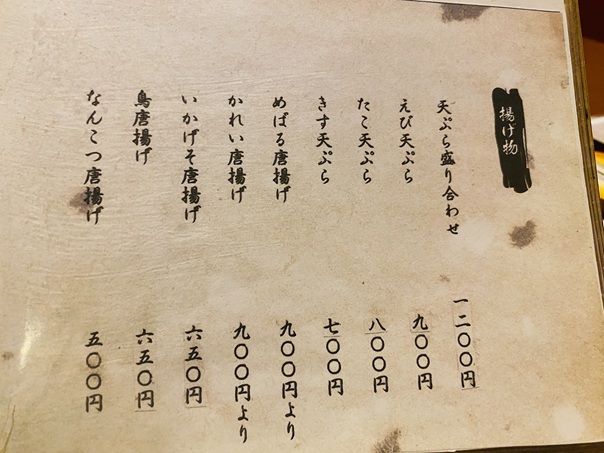 揚げ物
天ぷら盛り合わせ 一二〇〇円
えび天ぷら 九〇〇円
たこ天ぷら 八〇〇円
きす天ぷら 七〇〇円
めばる唐揚げ 九〇〇円より
かれい唐揚げ 九〇〇円より
いかげそ唐揚げ 六五〇円
鳥唐揚げ 六五〇円
なんこつ唐揚げ 五〇〇円